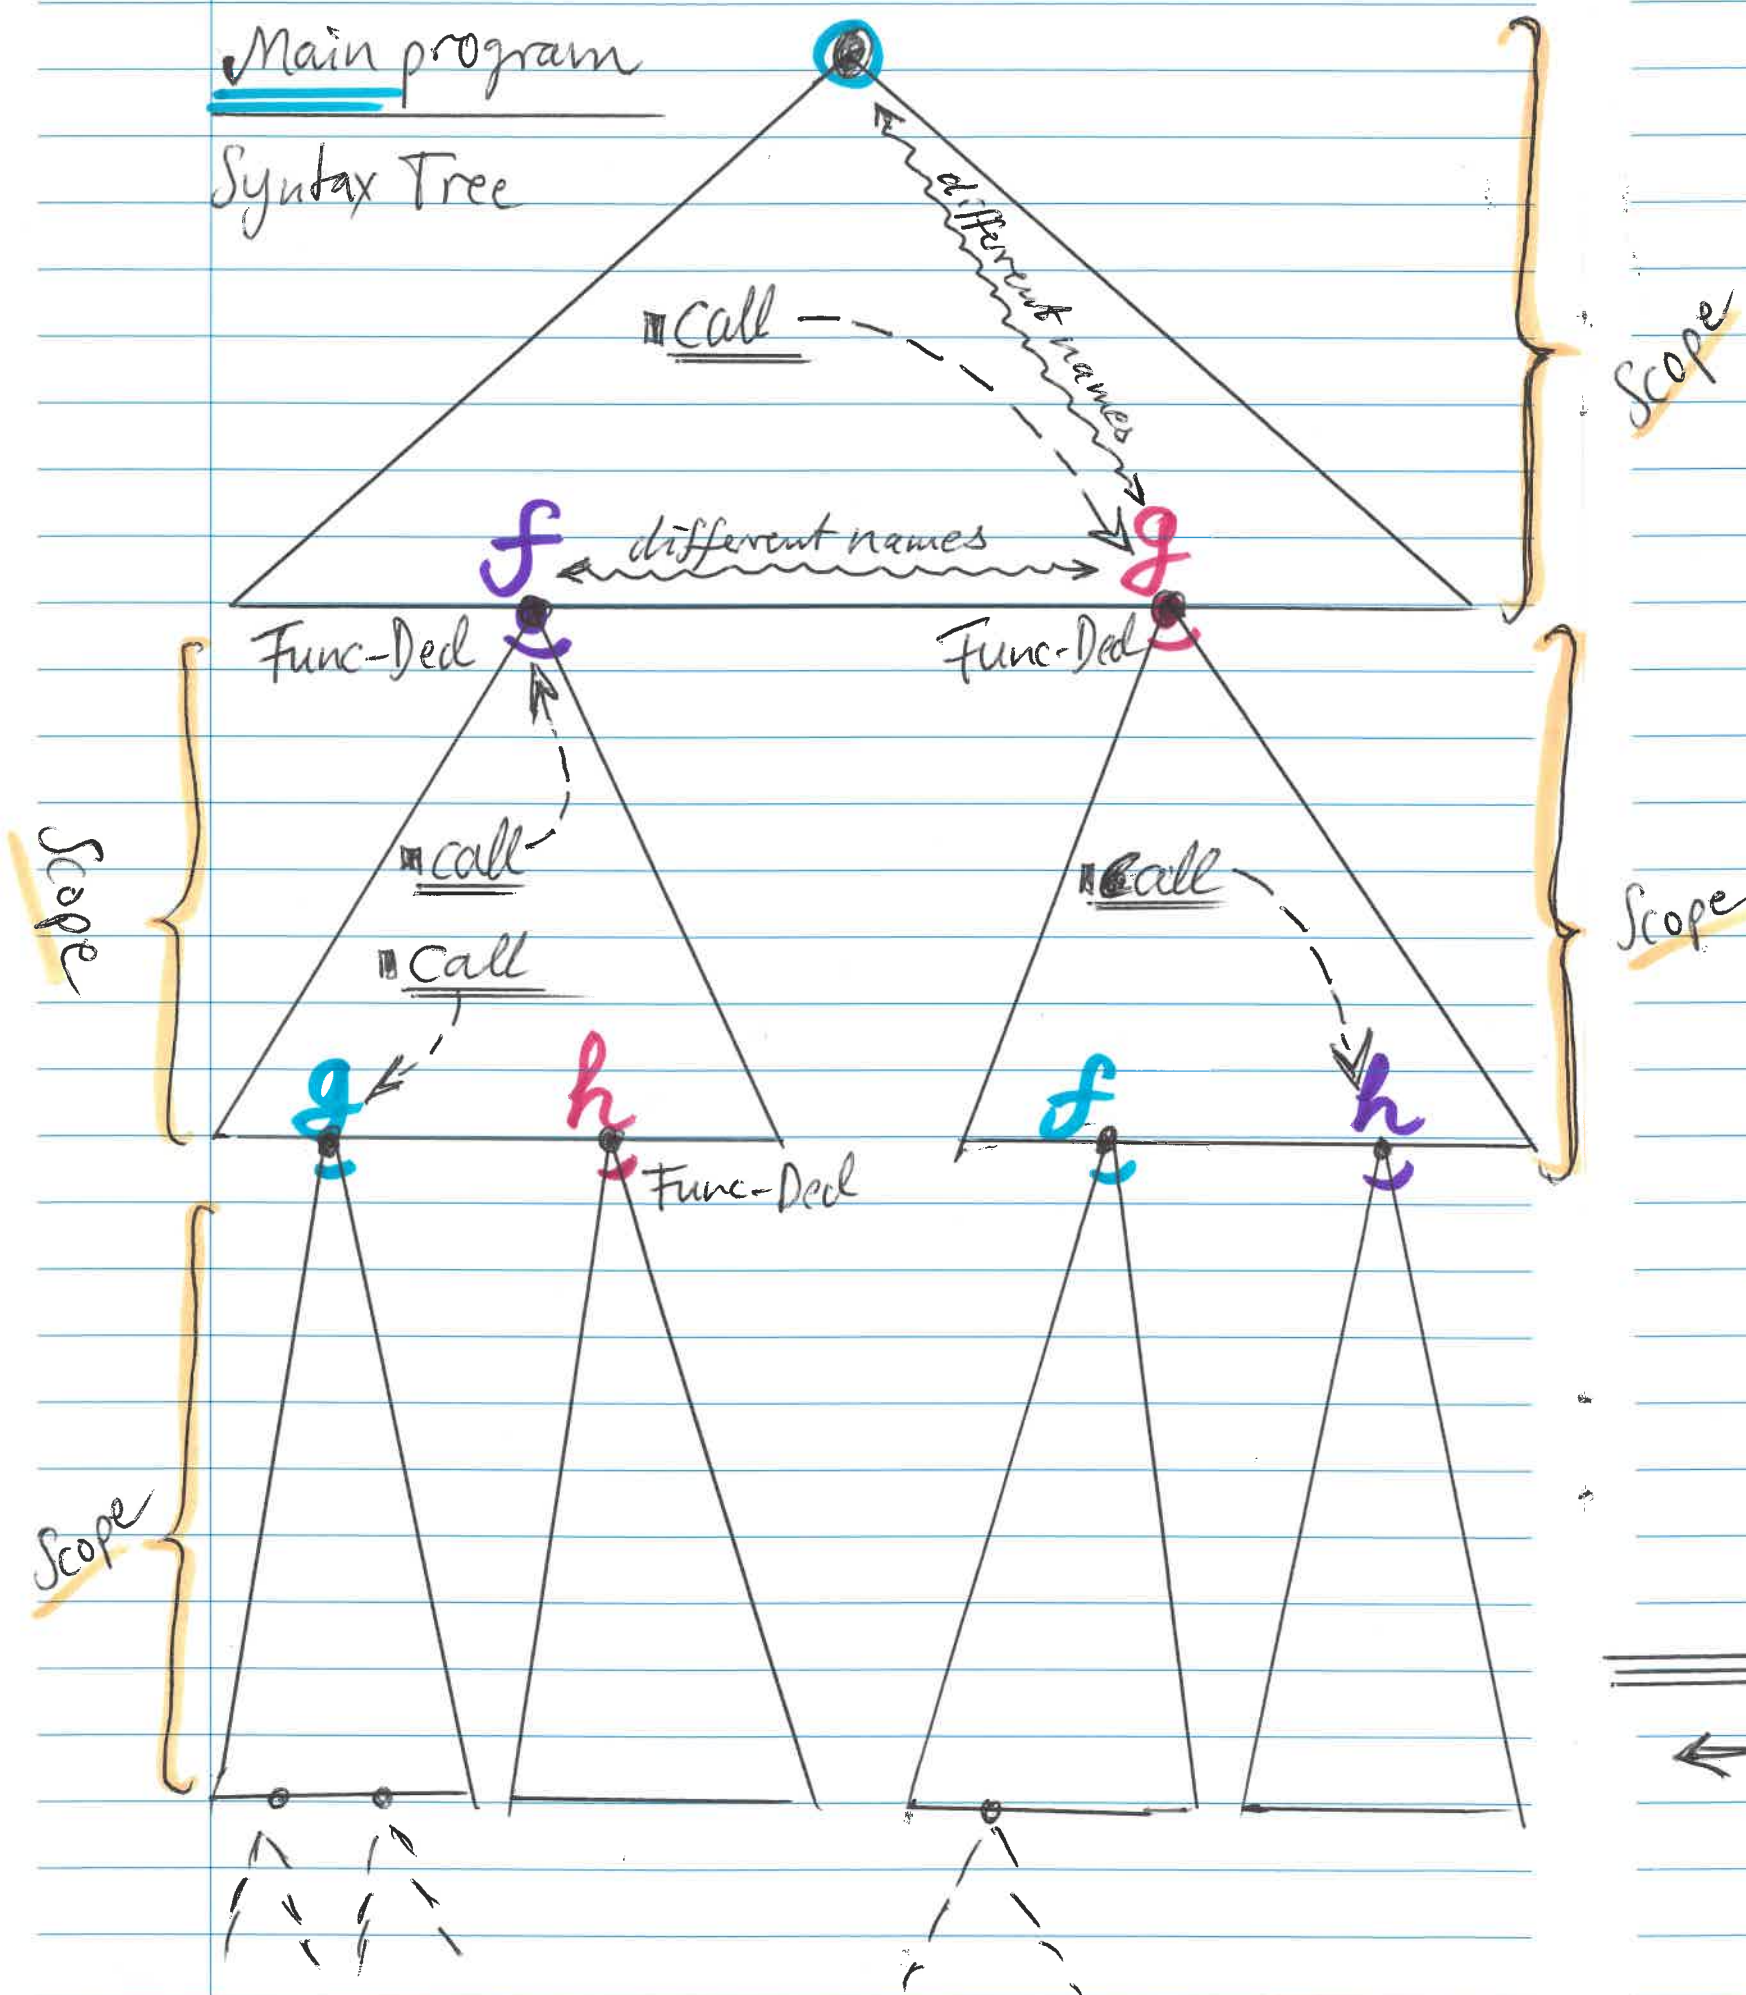 Main program
Syntax Tree
different names
call
Scope
f different names g
Func-Decl Func-Decl
call
call
Scope
Scope
call
g h f h
Func-Decl
Scope